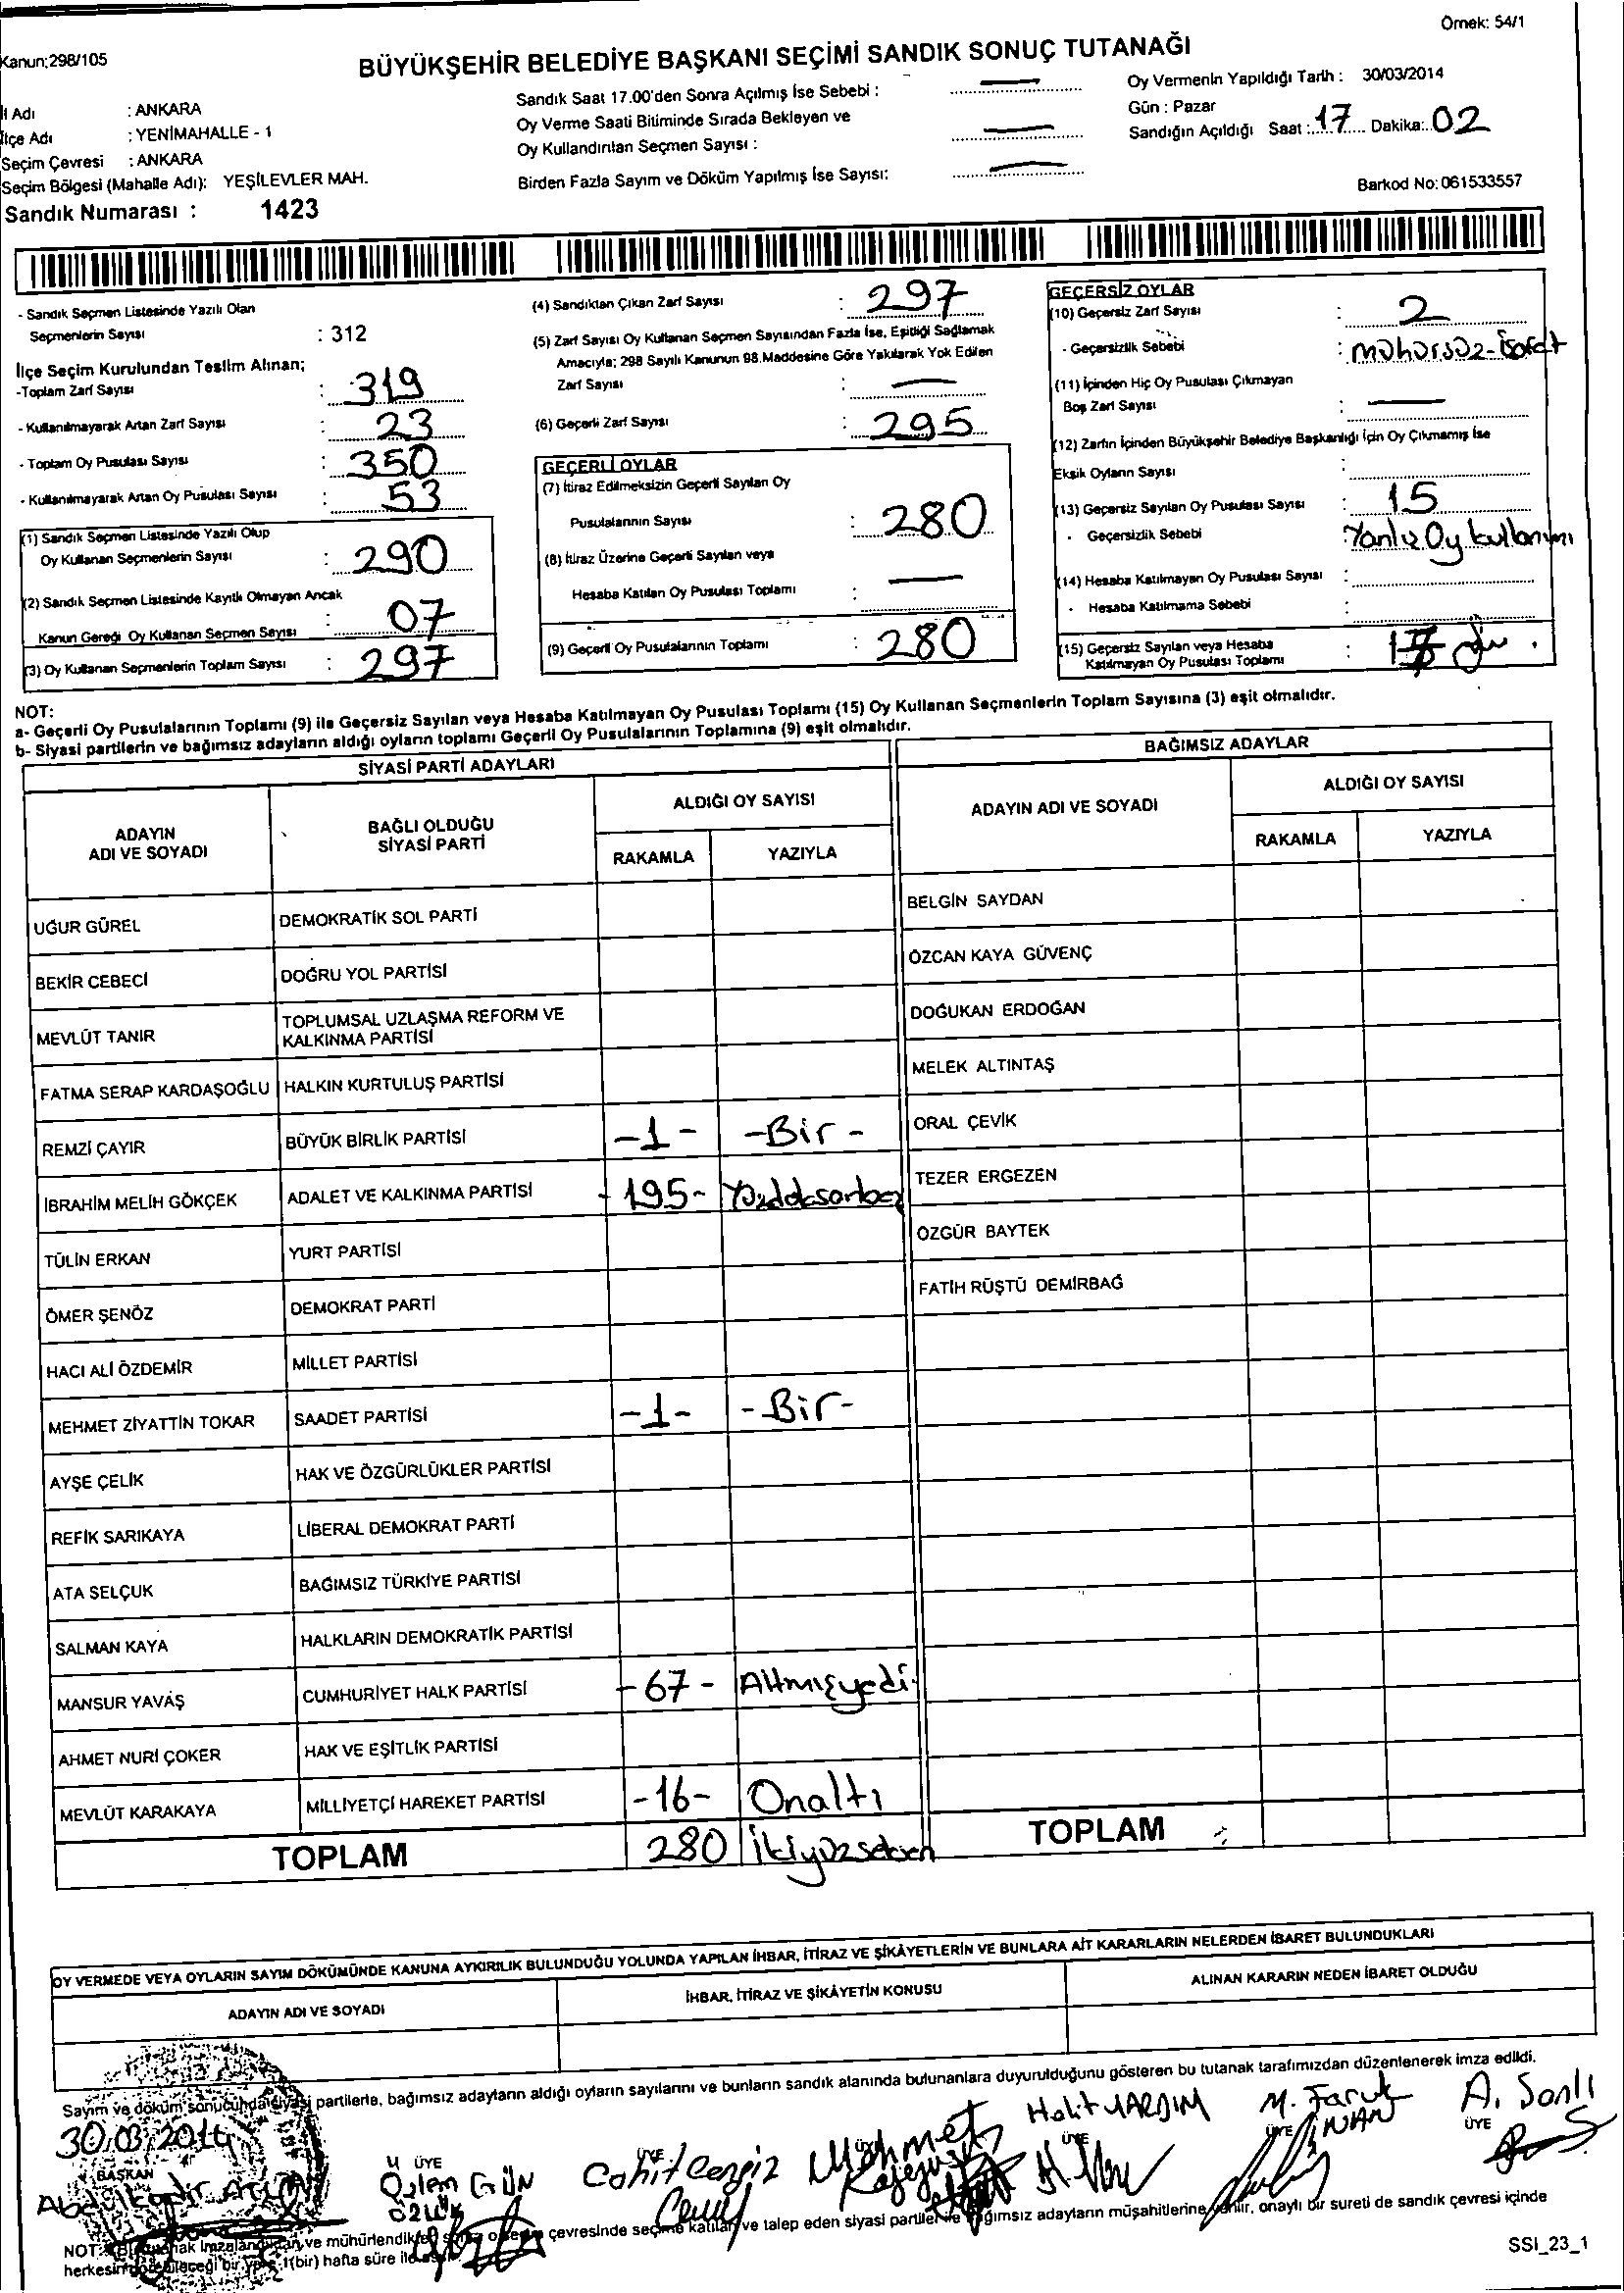 Örnek: 54/1
Kanun:298/105
BÜYÜKŞEHİR BELEDİYE BAŞKANI SEÇİMİ SANDIK SONUÇ TUTANAĞI
İl Adı : ANKARA
İlçe Adı : YENİMAHALLE - 1
Seçim Çevresi : ANKARA
Seçim Bölgesi (Mahalle Adı): YEŞİLEVLER MAH.
Sandık Numarası : 1423
Sandık Saat 17.00'den Sonra Açılmış İse Sebebi : —
Oy Verme Saati Bitiminde Sırada Bekleyen ve
Oy Kullandırılan Seçmen Sayısı : —
Birden Fazla Sayım ve Döküm Yapılmış İse Sayısı: —
Oy Vermenin Yapıldığı Tarih : 30/03/2014
Gün : Pazar
Sandığın Açıldığı Saat : 17 Dakika: 02
Barkod No: 061533557
- Sandık Seçmen Listesinde Yazılı Olan
Seçmenlerin Sayısı : 312
İlçe Seçim Kurulundan Teslim Alınan;
-Toplam Zarf Sayısı : 319
- Kullanılmayarak Artan Zarf Sayısı : 23
- Toplam Oy Pusulası Sayısı : 350
- Kullanılmayarak Artan Oy Pusulası Sayısı : 53
(1) Sandık Seçmen Listesinde Yazılı Olup
Oy Kullanan Seçmenlerin Sayısı : 290
(2) Sandık Seçmen Listesinde Kayıtlı Olmayan Ancak
Kanun Gereği Oy Kullanan Seçmen Sayısı : 07
(3) Oy Kullanan Seçmenlerin Toplam Sayısı : 297
(4) Sandıktan Çıkan Zarf Sayısı : 297
(5) Zarf Sayısı Oy Kullanan Seçmen Sayısından Fazla İse, Eşitliği Sağlamak
Amacıyla; 298 Sayılı Kanunun 98.Maddesine Göre Yakılarak Yok Edilen
Zarf Sayısı : —
(6) Geçerli Zarf Sayısı : 295
GEÇERLİ OYLAR
(7) İtiraz Edilmeksizin Geçerli Sayılan Oy
Pusulalarının Sayısı : 280
(8) İtiraz Üzerine Geçerli Sayılan veya
Hesaba Katılan Oy Pusulası Toplamı : —
(9) Geçerli Oy Pusulalarının Toplamı : 280
GEÇERSİZ OYLAR
(10) Geçersiz Zarf Sayısı : 2
- Geçersizlik Sebebi : mühürsüz-
(11) İçinden Hiç Oy Pusulası Çıkmayan
Boş Zarf Sayısı : —
(12) Zarfın İçinden Büyükşehir Belediye Başkanlığı İçin Oy Çıkmamış İse
Eksik Oyların Sayısı :
(13) Geçersiz Sayılan Oy Pusulası Sayısı : 15
- Geçersizlik Sebebi : Yanlız Oy kullanımı
(14) Hesaba Katılmayan Oy Pusulası Sayısı :
- Hesaba Katılmama Sebebi :
(15) Geçersiz Sayılan veya Hesaba
Katılmayan Oy Pusulası Toplamı :
NOT:
a- Geçerli Oy Pusulalarının Toplamı (9) ile Geçersiz Sayılan veya Hesaba Katılmayan Oy Pusulası Toplamı (15) Oy Kullanan Seçmenlerin Toplam Sayısına (3) eşit olmalıdır.
b- Siyasi partilerin ve bağımsız adayların aldığı oyların toplamı Geçerli Oy Pusulalarının Toplamına (9) eşit olmalıdır.
SİYASİ PARTİ ADAYLARI
ADAYIN ADI VE SOYADI BAĞLI OLDUĞU SİYASİ PARTİ ALDIĞI OY SAYISI
RAKAMLA YAZIYLA
UĞUR GÜREL DEMOKRATİK SOL PARTİ
BEKİR CEBECİ DOĞRU YOL PARTİSİ
MEVLÜT TANIR TOPLUMSAL UZLAŞMA REFORM VE KALKINMA PARTİSİ
FATMA SERAP KARDAŞOĞLU HALKIN KURTULUŞ PARTİSİ
REMZİ ÇAYIR BÜYÜK BİRLİK PARTİSİ -1- -Bir-
İBRAHİM MELİH GÖKÇEK ADALET VE KALKINMA PARTİSİ -195- Yüzdoksanbeş
TÜLİN ERKAN YURT PARTİSİ
ÖMER ŞENÖZ DEMOKRAT PARTİ
HACI ALİ ÖZDEMİR MİLLET PARTİSİ
MEHMET ZİYATTİN TOKAR SAADET PARTİSİ -1- -Bir-
AYŞE ÇELİK HAK VE ÖZGÜRLÜKLER PARTİSİ
REFİK SARIKAYA LİBERAL DEMOKRAT PARTİ
ATA SELÇUK BAĞIMSIZ TÜRKİYE PARTİSİ
SALMAN KAYA HALKLARIN DEMOKRATİK PARTİSİ
MANSUR YAVAŞ CUMHURİYET HALK PARTİSİ -67- Altmışyedi
AHMET NURİ ÇOKER HAK VE EŞİTLİK PARTİSİ
MEVLÜT KARAKAYA MİLLİYETÇİ HAREKET PARTİSİ -16- Onaltı
TOPLAM 280 İkiyüzseksen
BAĞIMSIZ ADAYLAR
ADAYIN ADI VE SOYADI ALDIĞI OY SAYISI
RAKAMLA YAZIYLA
BELGİN SAYDAN
ÖZCAN KAYA GÜVENÇ
DOĞUKAN ERDOĞAN
MELEK ALTINTAŞ
ORAL ÇEVİK
TEZER ERGEZEN
ÖZGÜR BAYTEK
FATİH RÜŞTÜ DEMİRBAĞ
TOPLAM
OY VERMEDE VEYA OYLARIN SAYIM DÖKÜMÜNDE KANUNA AYKIRILIK BULUNDUĞU YOLUNDA YAPILAN İHBAR, İTİRAZ VE ŞİKÂYETLERİN VE BUNLARA AİT KARARLARIN NELERDEN İBARET BULUNDUKLARI
ADAYIN ADI VE SOYADI İHBAR, İTİRAZ VE ŞİKÂYETİN KONUSU ALINAN KARARIN NEDEN İBARET OLDUĞU
Sayım ve döküm sonucunda siyasi partilerle, bağımsız adayların aldığı oyların sayılarını ve bunların sandık alanında bulunanlara duyurulduğunu gösteren bu tutanak tarafımızdan düzenlenerek imza edildi.
30.03.2014
BAŞKAN ÜYE ÜYE ÜYE ÜYE ÜYE
Abdulkadir Özlem GÜN Cahit Cengiz Mehmet Halit YARDIM M. Faruk İNAN A. Sanlı
NOT: ve mühürlendikten sonra çevresinde seçime katılan ve talep eden siyasi partiler ve bağımsız adayların müşahitlerine verilir, onaylı bir sureti de sandık çevresi içinde
herkesin görebileceği bir yere 1(bir) hafta süre ile asılır.
SSI_23_1